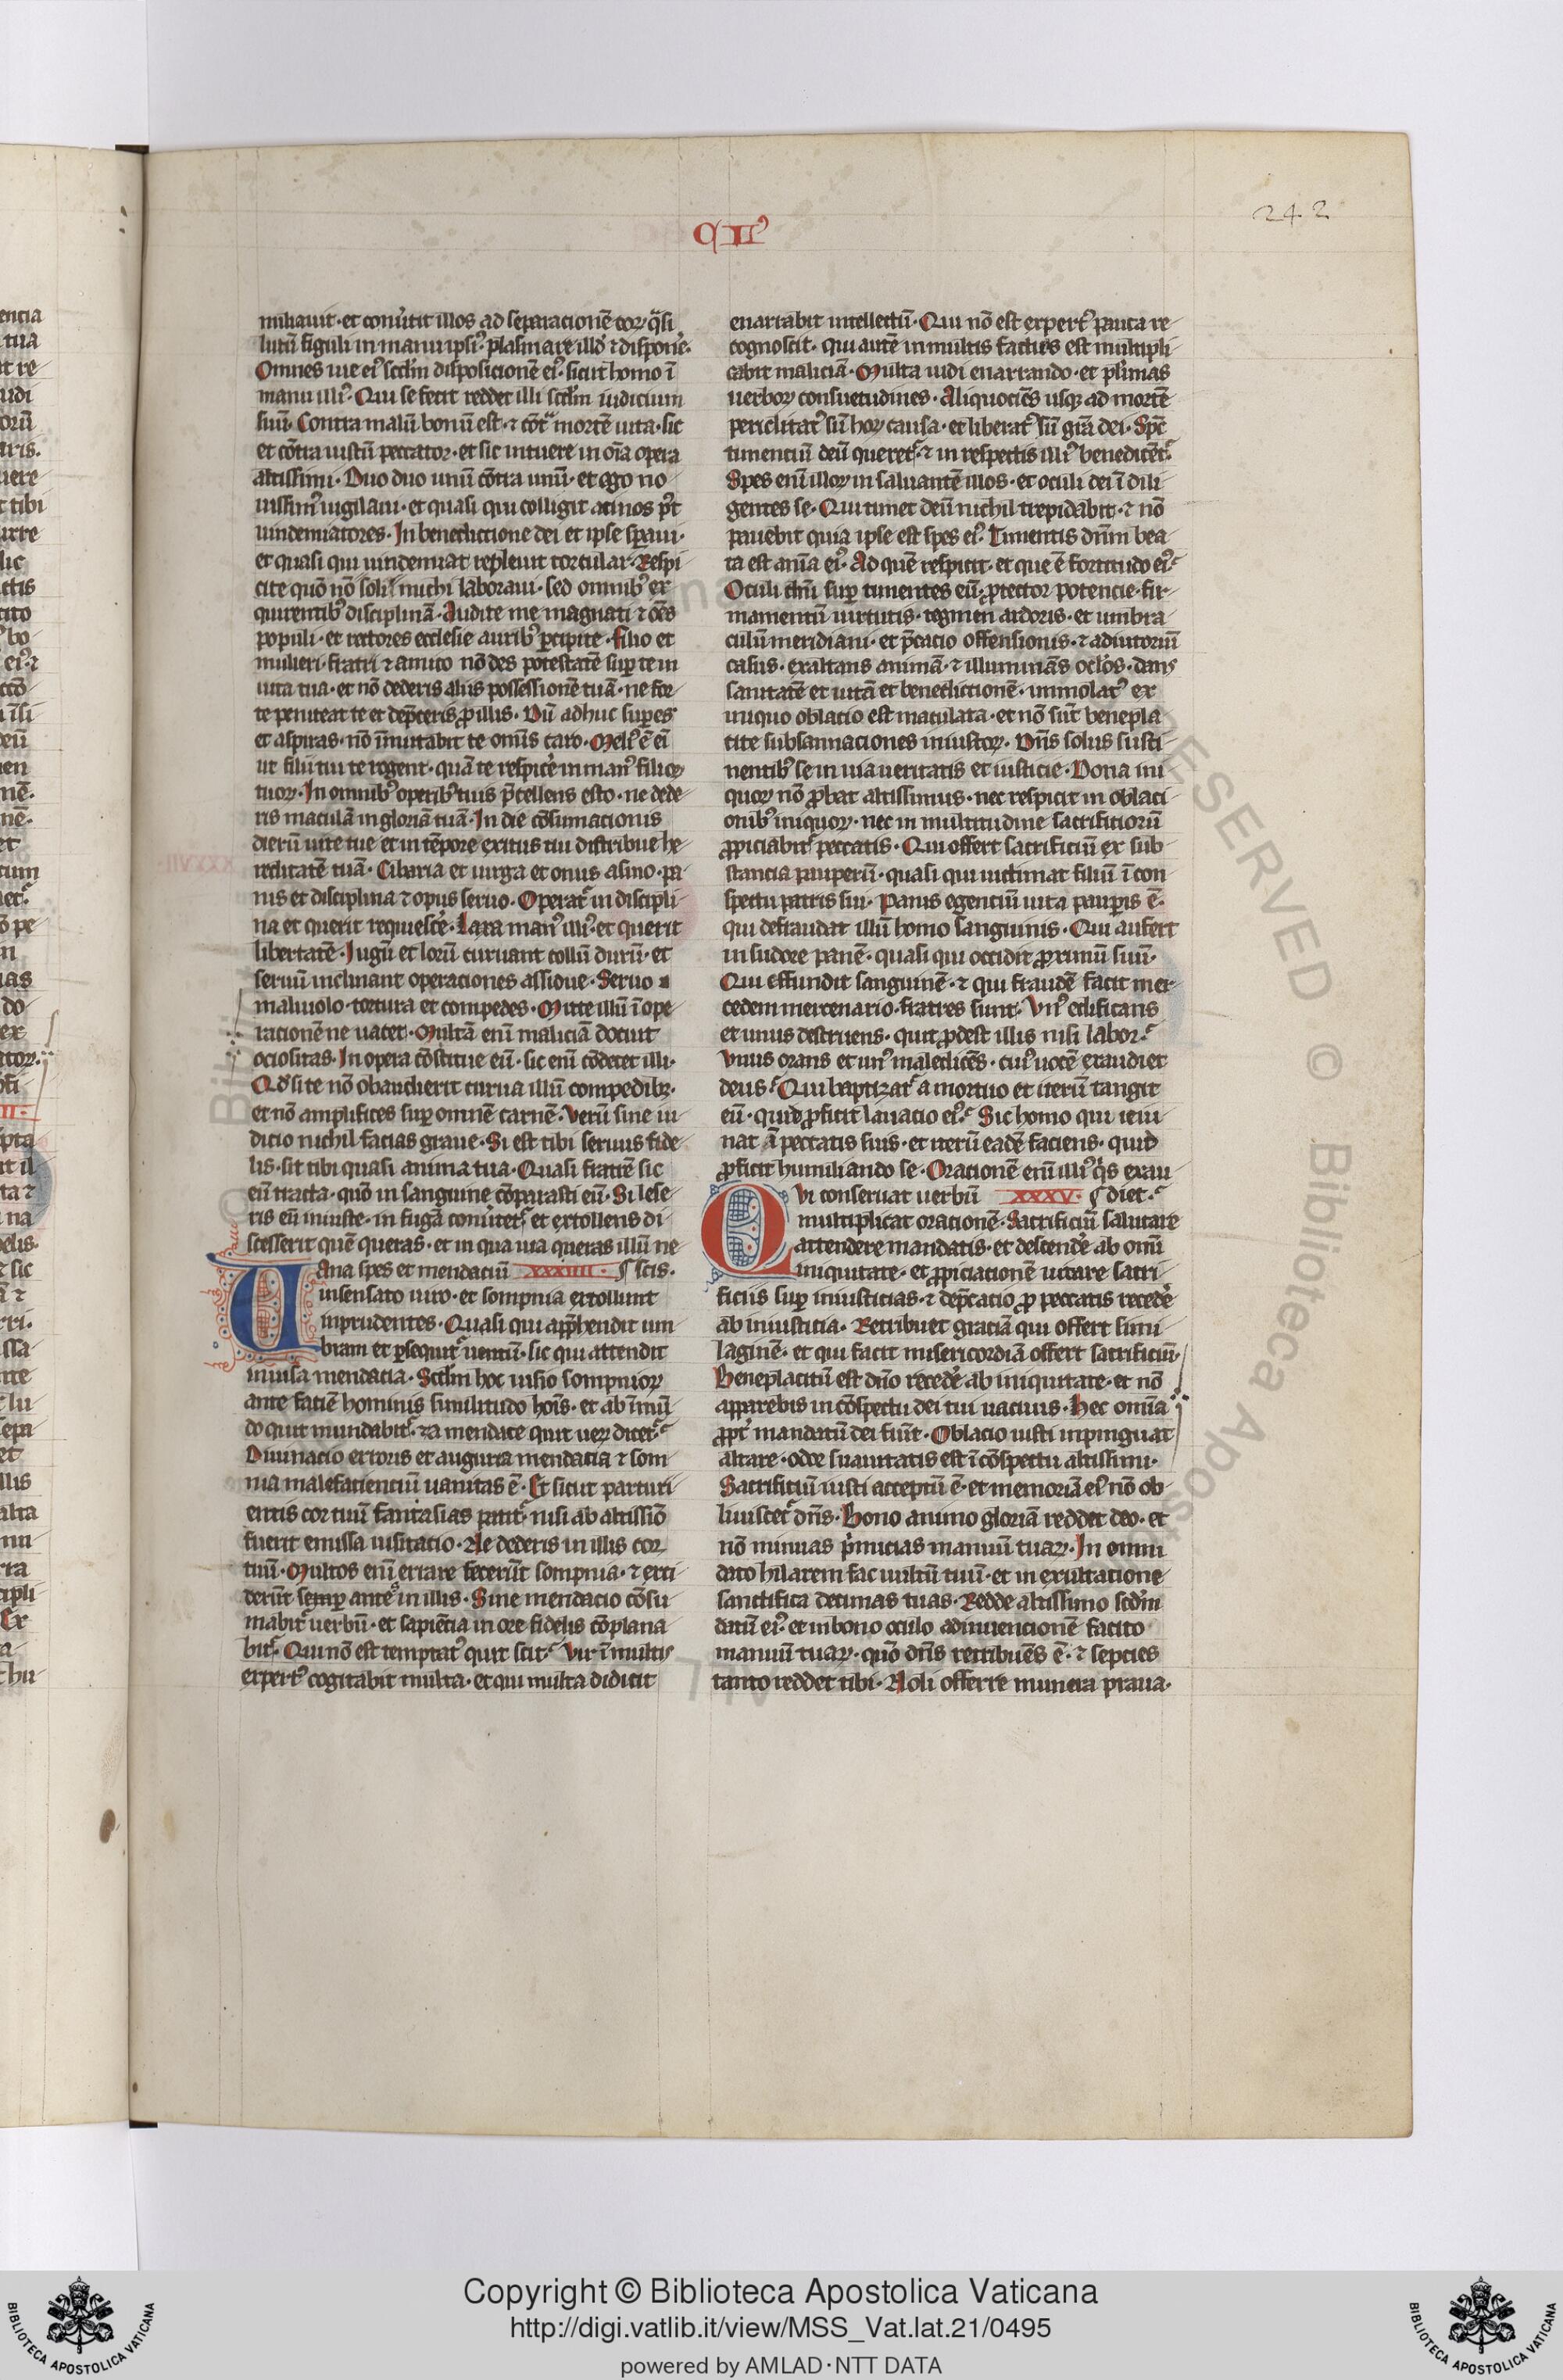 CIIꝰ
242
miliauit · et conůtit illos ad separacionē eoꝝ · q̃si
lutū figuli in manu ipsiꝰ · plasmare illď ⁊ dispoñe ·
Omnes uie eiꝰ scd̄m disposicionē eiꝰ · sicut homo ī
manu illiꝰ · Qui se fecit reddet illi scd̄m iudicium
suū · Contra malū bonū est · ⁊ cõt̃ mortē uita · sic
et cōtra iustū peccator · et sic intuere in oīa opera
altissimi · Duo duo unū cōtra unū · et ego no
uissimꝰ uigilaui · et quasi qui colligit acinos p̃t
uindemiatores · In benedictione dei et ipse speraui ·
et quasi qui uindemiat repleuit torcular · Respi
cite quō nō soli michi laboraui · sed omnibꝰ ex
quirentibꝰ disciplinā · Audite me magnati ⁊ ōēs
populi · et rectores ecclesie auribꝰ ꝑcipite · Filio et
mulieri · fratri ⁊ amico nō des potestatē suꝑ te in
uita tua · et nō dederis aliis possessionē tuā · ne for
te peniteat te et dep̄ceris ꝓ illis · Dū adhuc suꝑes
et aspiras · nō īmutabit te omīs caro · Meliꝰ ē eī
ut filii tui te rogent · quā te respicẽ in manꝰ filioꝝ
tuoꝝ · In omnibꝰ operibꝰ tuis p̄cellens esto · ne dede
ris maculā in gloriā tuā · In die cōsumacionis
dierū uite tue et in tēpore exitus tui distribue he
reditatē tuā · Cibaria et uirga et onus asino · pa
nis et disciplina ⁊ opus seruo · Operat᷑ in discipli
na et querit requiescẽ · Laxa manꝰ illiꝰ · et querit
libertatē · Iugū et lorū curuant collū durū · et
seruū inclinant operaciones assidue · Seruo
maliuolo · tortura et compedes · Mitte illū ī ope
racionē ne uacet · Multā enī maliciā docuit
ociositas · In opera cōstitue eū · sic enī cōdecet illi ·
Qď si te nō obaudierit curua illū compedibꝫ ·
et nō amplifices suꝑ omnē carnē · Verū sine iu
dicio nichil facias graue · Si est tibi seruus fide
lis · sit tibi quasi anima tua · Quasi fratrē sic
eū tracta · quō in sanguine cōparasti eū · Si lese
ris eū iniuste · in fugā conůtet᷑ · et extollens di
scesserit quē queras · et in qua uia queras illū ne
Vana spes et mendaciū XXXIIII · ¶ scis ·
insensato uiro · et sompnia extollunt
inprudentes · Quasi qui app̄hendit um
bram et ꝑsequit᷑ uentū · sic qui attendit
inuisa mendacia · Scd̄m hoc uisio sompnioꝝ
ante faciē hominis similitudo hoīs · et ab īmū
do quit mundabit᷑ · ⁊ a mendace quit ueꝝ dicet᷑ ·
Diuinacio erroris et auguria mendacia ⁊ som
nia malefacienciū uanitas ē · Et sicut parturi
entis cor tuū fantasias patit᷑ · nisi ab altissīo
fuerit emissa uisitacio · Ne dederis in illis cor
tuū · Multos enī errare fecerūt sompnia · ⁊ exci
derūt semꝑ ante in illis · Sine mendacio cōsu
mabit᷑ uerbū · et sapiēcia in ore fidelis cōplana
bit᷑ · Qui nō est temptatꝰ quit scit · Vir ī multis
expertꝰ cogitabit multa · et qui multa didicit
enarrabit intellectū · Qui nō est expertꝰ pauca re
cognoscit · qui autē in multis factus est multipli
cabit maliciā · Multa uidi enarrando · et pl̃imas
uerboꝝ consuetudines · Aliquociēs usqꝫ ad mortē
periclitatꝰ sū hoꝝ causa · et liberatꝰ sū gr̄a dei · Sp̄c
timenciū deū queret᷑ · ⁊ in respectis illiꝰ benedicēt᷑ ·
Spes enī illoꝝ in saluantē illos · et oculi dei ī dili
gentes se · Qui timet deū nichil trepidabit · ⁊ nō
pauebit quia ipse est spes eiꝰ · Timentis dn̄m bea
ta est anīa eiꝰ · Ad quē respicit · et que ē fortitudo eiꝰ ·
Oculi dn̄i suꝑ timentes eū · ꝓtector potencie · fir
mamentū uirtutis · tegmen ardoris · et umbra
culū meridiani · et p̄catio offensionis · ⁊ adiutoriū
casus · exaltans animā · ⁊ illuminās oclos · dans
sanitatē et uitā et benedictionē · immolatꝰ ex
iniquo oblatio est maculata · et nō sūt benepla
cite subsannaciones iniustoꝝ · Dn̄s solus susti
nentibꝰ se in uia ueritatis et iusticie · Dona ini
quoꝝ nō ꝓbat altissimus · nec respicit in oblaci
onibꝰ iniquoꝝ · nec in multitudine sacrificiorū
ꝓpiciabit᷑ peccatis · Qui offert sacrificiū ex sub
stancia pauperū · quasi qui uictimat filiū ī con
spectu patris sui · Panis egenciū uita pauꝑis ē ·
qui defraudat illū homo sanguinis · Qui aufert
in sudore panē · quasi qui occidit ꝓximū suū ·
Qui effundit sanguinē · ⁊ qui fraudē facit mer
cedem mercenario · fratres sunt · Vnꝰ edificans
et unus destruens · quit ꝓdest illis nisi labor ·
Vnus orans et unꝰ maledicēs · cuiꝰ uocē exaudiet
deus · Qui baptizat᷑ a mortuo et iterū tangit
eū · quid ꝓficit lauacio eiꝰ · Sic homo qui ieiu
nat ā peccatis suis · et iterū eadē faciens · quid
ꝓficit humiliando se · Oracionē enī illiꝰ q̓s exau
QVi conseruat uerbū XXXV · ¶ diet ·
multiplicat oracionē · Sacrificiū salutare
attendere mandatis · et descendẽ ab omī
iniquitate · et ꝓpiciacionē uitare sacri
ficiis suꝑ iniusticias · ⁊ dep̄catio ꝓ peccatis recedẽ
ab iniusticia · Retribuet graciā qui offert simi
laginē · et qui facit misericordiā offert sacrificiū ·
Beneplacitū est dn̄o recedẽ ab iniquitate · et nō
apparebis in cōspectu dei tui uacuus · Hec omīa
ꝓpt̃ mandatū dei fiūt · Oblacio iusti inpinguat
altare · odor suauitatis est ī cōspectu altissimi ·
Sacrificiū iusti acceptū ē · et memoriā eiꝰ nō ob
liuiscet᷑ dn̄s · Bono animo gloriā reddet deo · et
nō minuas p̓micias manuū tuaꝝ · In omni
dato hilarem fac uultū tuū · et in exultatione
sanctifica decimas tuas · Redde altissimo scd̄m
datū eiꝰ · et in bono oculo adinuencionē facito
manuū tuaꝝ · quō dn̄s retribuēs ē · ⁊ septies
tanto reddet tibi · Noli offerre munera praua ·
Copyright © Biblioteca Apostolica Vaticana
http://digi.vatlib.it/view/MSS_Vat.lat.21/0495
powered by AMLAD·NTT DATA
BIBLIOTECA APOSTOLICA VATICANA
BIBLIOTECA APOSTOLICA VATICANA